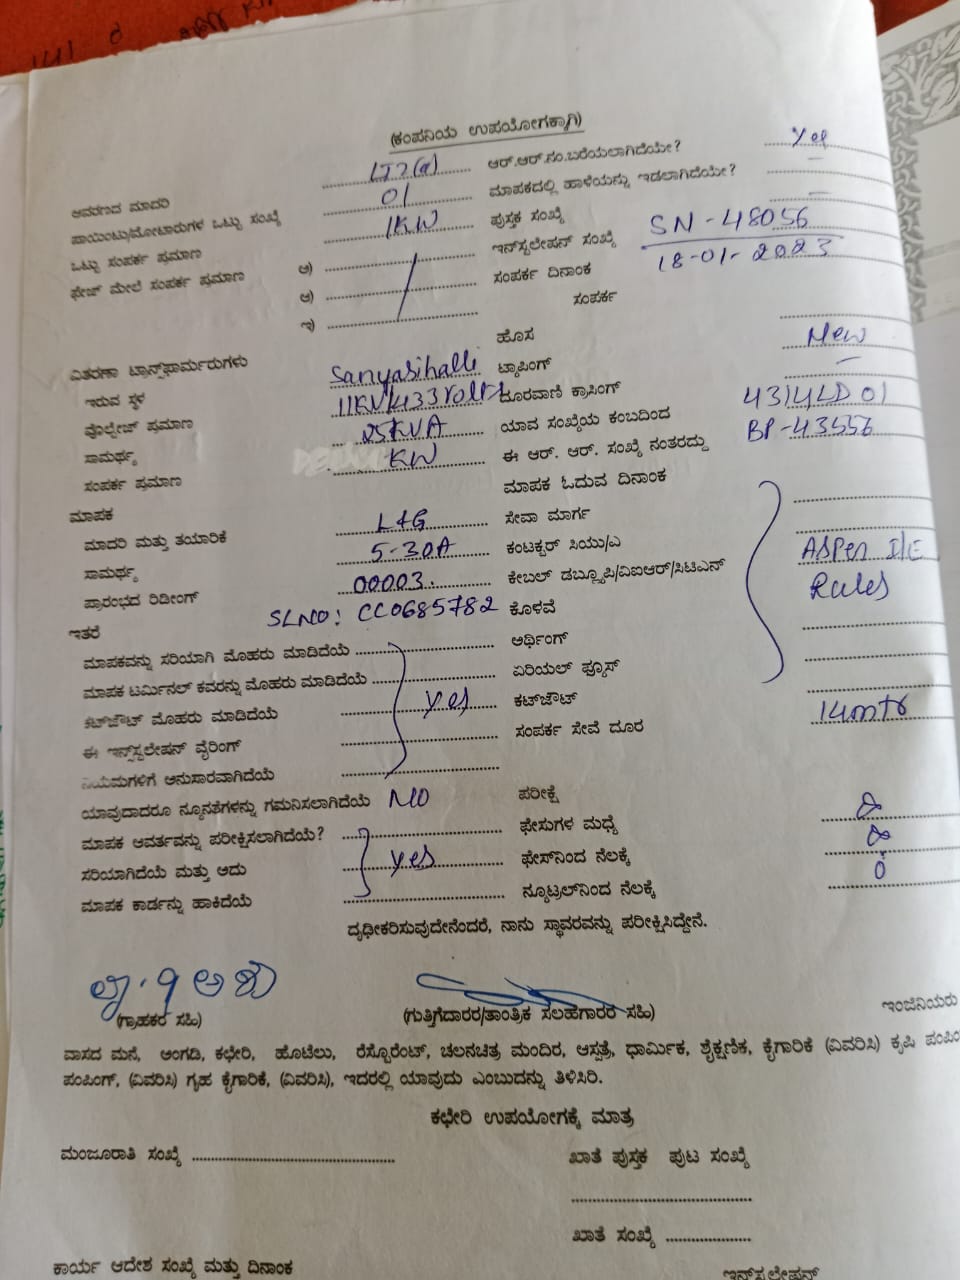 (ಕಂಪನಿಯ ಉಪಯೋಗಕ್ಕಾಗಿ)
ಆವರಣದ ಮಾದರಿ LT2(a) ಆರ್.ಆರ್.ನಂ.ಬರೆಯಲಾಗಿದೆಯೇ? Yes
ಪಾಯಿಂಟು/ಮೋಟಾರುಗಳ ಒಟ್ಟು ಸಂಖ್ಯೆ 01 ಮಾಪಕದಲ್ಲಿ ಹಾಳೆಯನ್ನು ಇಡಲಾಗಿದೆಯೇ? –
ಒಟ್ಟು ಸಂಪರ್ಕ ಪ್ರಮಾಣ 1KW ಪುಸ್ತಕ ಸಂಖ್ಯೆ –
ಫೇಜ್ ಮೇಲೆ ಸಂಪರ್ಕ ಪ್ರಮಾಣ ಅ) ಇನ್‌ಸ್ಟಲೇಷನ್ ಸಂಖ್ಯೆ SN-48056
ಆ) ಸಂಪರ್ಕ ದಿನಾಂಕ 18-01-2023
ಇ) ಸಂಪರ್ಕ
ವಿತರಣಾ ಟ್ರಾನ್ಸ್‌ಫಾರ್ಮರುಗಳು ಹೊಸ New
ಇರುವ ಸ್ಥಳ Sanyasihalli ಟ್ಯಾಪಿಂಗ್ –
ವೊಲ್ಟೇಜ್ ಪ್ರಮಾಣ 11KV/433Volts ದೂರವಾಣಿ ಕ್ರಾಸಿಂಗ್
ಸಾಮರ್ಥ್ಯ 25KVA ಯಾವ ಸಂಖ್ಯೆಯ ಕಂಬದಿಂದ 43142D01
ಸಂಪರ್ಕ ಪ್ರಮಾಣ KW ಈ ಆರ್. ಆರ್. ಸಂಖ್ಯೆ ನಂತರದ್ದು BP-43556
ಮಾಪಕ ಮಾಪಕ ಓದುವ ದಿನಾಂಕ
ಮಾದರಿ ಮತ್ತು ತಯಾರಿಕೆ L&G ಸೇವಾ ಮಾರ್ಗ
ಸಾಮರ್ಥ್ಯ 5-30A ಕಂಟಕ್ಟರ್ ಸಿಯು/ಎ
ಪ್ರಾರಂಭದ ರಿಡೀಂಗ್ 00003. ಕೇಬಲ್ ಡಬ್ಲ್ಯೂಪಿ/ವಿಐಆರ್/ಸಿಟಿಎಸ್ ASPer I/E
ಇತರೆ SLNO: CC0685782 ಕೊಳವೆ Rules
ಮಾಪಕವನ್ನು ಸರಿಯಾಗಿ ಮೊಹರು ಮಾಡಿದೆಯೆ ಅರ್ಥಿಂಗ್
ಮಾಪಕ ಟರ್ಮಿನಲ್ ಕವರನ್ನು ಮೊಹರು ಮಾಡಿದೆಯೆ ಏರಿಯಲ್ ಫ್ಯೂಸ್
ಕಟ್‌ಔಟ್ ಮೊಹರು ಮಾಡಿದೆಯೆ Yes ಕಟ್‌ಔಟ್
ಈ ಇನ್‌ಸ್ಟಲೇಷನ್ ವೈರಿಂಗ್ ಸಂಪರ್ಕ ಸೇವೆ ದೂರ 14mtr
ನಿಯಮಗಳಿಗೆ ಅನುಸಾರವಾಗಿದೆಯೆ
ಯಾವುದಾದರೂ ನ್ಯೂನತೆಗಳನ್ನು ಗಮನಿಸಲಾಗಿದೆಯೆ NO ಪರೀಕ್ಷೆ
ಮಾಪಕ ಆವರ್ತವನ್ನು ಪರೀಕ್ಷಿಸಲಾಗಿದೆಯೆ? ಫೇಸುಗಳ ಮಧ್ಯೆ ∞
ಸರಿಯಾಗಿದೆಯೆ ಮತ್ತು ಅದು Yes ಫೇಸ್‌ನಿಂದ ನೆಲಕ್ಕೆ ∞
ಮಾಪಕ ಕಾರ್ಡನ್ನು ಹಾಕಿದೆಯೆ ನ್ಯೂಟ್ರಲ್‌ನಿಂದ ನೆಲಕ್ಕೆ 0
ದೃಢೀಕರಿಸುವುದೇನೆಂದರೆ, ನಾನು ಸ್ಥಾವರವನ್ನು ಪರೀಕ್ಷಿಸಿದ್ದೇನೆ.
(ಗ್ರಾಹಕರ ಸಹಿ) (ಗುತ್ತಿಗೆದಾರರ/ತಾಂತ್ರಿಕ ಸಲಹೆಗಾರರ ಸಹಿ) ಇಂಜಿನಿಯರು
ವಾಸದ ಮನೆ, ಅಂಗಡಿ, ಕಛೇರಿ, ಹೊಟೆಲು, ರೆಸ್ಟೊರೆಂಟ್, ಚಲನಚಿತ್ರ ಮಂದಿರ, ಆಸ್ಪತ್ರೆ, ಧಾರ್ಮಿಕ, ಶೈಕ್ಷಣಿಕ, ಕೈಗಾರಿಕೆ (ವಿವರಿಸಿ) ಕೃಷಿ
ಪಂಪಿಂಗ್, (ವಿವರಿಸಿ) ಗೃಹ ಕೈಗಾರಿಕೆ, (ವಿವರಿಸಿ), ಇದರಲ್ಲಿ ಯಾವುದು ಎಂಬುದನ್ನು ತಿಳಿಸಿರಿ.
ಕಛೇರಿ ಉಪಯೋಗಕ್ಕೆ ಮಾತ್ರ
ಮಂಜೂರಾತಿ ಸಂಖ್ಯೆ ಖಾತೆ ಪುಸ್ತಕ ಪುಟ ಸಂಖ್ಯೆ
ಖಾತೆ ಸಂಖ್ಯೆ
ಕಾರ್ಯ ಆದೇಶ ಸಂಖ್ಯೆ ಮತ್ತು ದಿನಾಂಕ ಇನ್‌ಸ್ಟಲೇಷನ್